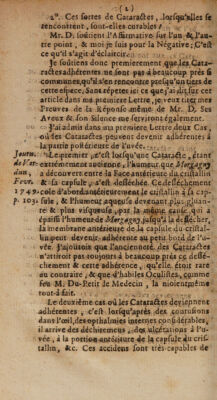 ( 2 )
2°. Ces sortes de Cataractes, lorsqu'elles se
rencontrent, sont-elles curables?
Mr. D. soutient l'Affirmative sur l'un & l'au-
tre point, & moi je suis pour la Négative; C'est
ce qu'il s'agit d'éclaircir.
Je soutiens donc premierement que les Cata-
ractes adhérentes ne sont pas à beaucoup près si
communes, qu'il s'en rencontre presqu'un tiers de
cette espece. Sans répeter ici ce que j'ai dit sur cet
article dans ma premiere Lettre, je vais tirer mes
Preuves de la réponse même de Mr. D. Ses
Aveux & son Silence me serviront également.
J'ai admis dans ma premiere Lettre deux Cas,
où les Cataractes peuvent devenir adhérentes à
la partie postérieure de l'uvée.
Journ. Le premier, c'est lorsque la Cataracte, étant
de Par. extrêmement ancienne, l'humeur que Morgagny
a découvert entre la Face antérieure du cristallin
Fevr. & sa capsule, s'est desséchée. Ce dessèchement
1749. cole d'abord antérieurement le cristallin à sa cap-
p. 103. sule, & l'humeur aqueuse devenant plus gluan-
te & plus visqueuse, par la même cause qui a
épaissi l'humeur de Morgagny jusqu'à la dessécher,
la membrane antérieure de la capsule du cristal-
lin peut devenir adhérente au petit bord de l'u-
vée. J'ajoûtois que l'ancienneté des Cataractes
n'attiroit pas toujours à beaucoup près ce dessé-
chement & cette adhérence, qu'elle étoit rare
au contraire, & que d'habiles Oculistes, comme
feu M. Du-Petit le Medecin, la nioient même
tout-à-fait.
Le deuxiéme cas où les Cataractes deviennent
adhérentes, c'est lorsqu'après des contusions
dans l'œil, des opthalmies internes considérables,
il arrive des déchiremens, des ulcérations à l'u-
vée, à la portion antérieure de la capsule du cris-
tallin, &c. Ces accidens sont très-capables de